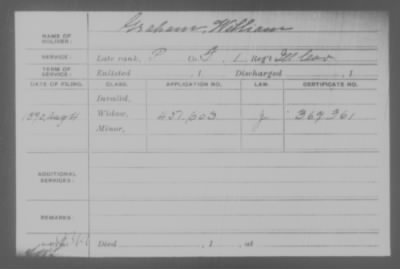 Graham, William
NAME OF SOLDIER:
SERVICE: Late rank, P Co. F, 1 Reg't Cav
TERM OF SERVICE: Enlisted , 1 Discharged , 1
DATE OF FILING. CLASS. APPLICATION NO. LAW. CERTIFICATE NO.
Invalid,
1892 Aug Widow, 457,603 369,361
Minor,
ADDITIONAL SERVICES:
REMARKS:
Died , 1 , at